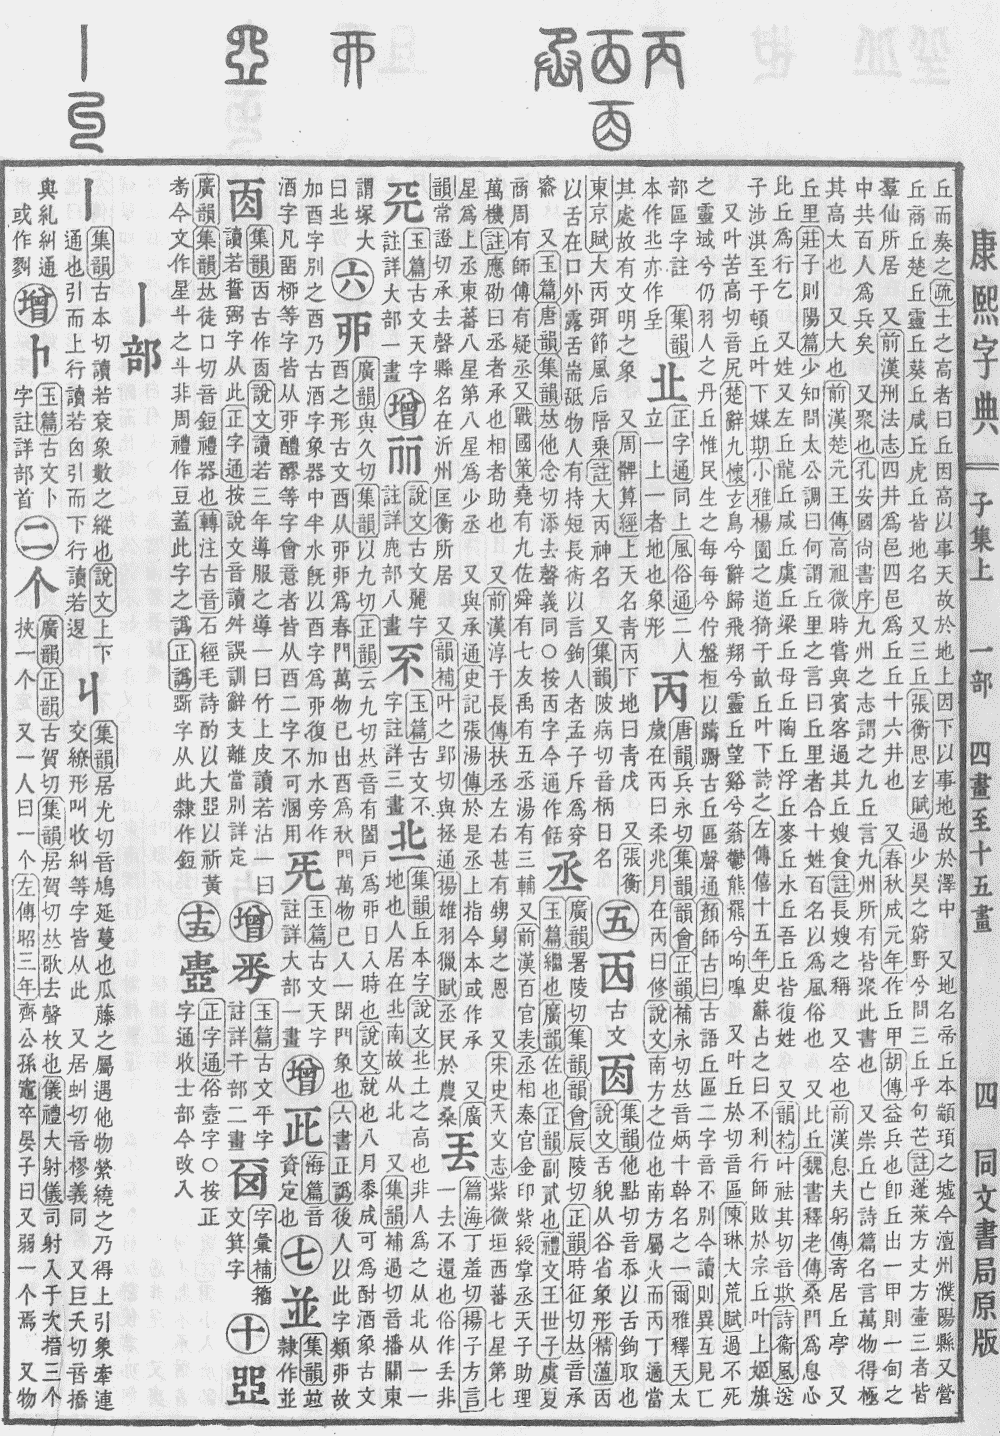 康熙字典 子集上 一部 四畫至十五畫 四 同文書局原版
丘而奏之疏土之高者曰丘因高以事天故於地上因下以事地故於澤中 又地名帝丘本顓頊之墟今澶州濮陽縣又營
丘商丘楚丘靈丘葵丘咸丘虎丘皆地名 又三丘張衡思玄賦過少昊之窮野兮問三丘乎句芒註蓬萊方丈方壷三者皆
羣仙所居 又前漢州法志四井爲邑四邑爲丘丘十六井也 又春秋成元年作丘甲胡傳益兵也卽丘出一甲則一甸之
中共百人爲兵矣 又聚也孔安國尙書序九州之志謂之九丘言九州所有皆聚此書也 又崇丘亡詩篇名言萬物得極
其高大也 又大也前漢楚元王傳高祖微時嘗與賓客過其丘嫂食註長嫂之稱 又空也前漢息夫躬傳寄居丘亭 又
丘里莊子則陽篇少知問太公調曰何謂丘里之言曰丘里者合十姓百名以爲風俗也 又比丘魏書釋老傳桑門爲息心
比丘爲行乞 又姓又左丘龍丘咸丘虞丘梁丘母丘陶丘浮丘麥丘水丘吾丘皆復姓 又韻補叶祛其切音欺詩衞風送
子涉淇至于頓丘叶下媒期小雅楊園之道猗于畝丘叶下詩之左傳僖十五年史蘇占之曰不利行師敗於宗丘叶上姬旗
又叶苦高切音尻楚辭九懷玄鳥兮辭歸飛翔兮靈丘望谿兮蓊鬱熊羆兮呴嘷 又叶丘於切音區陳琳大荒賦過不死
之靈域兮仍羽人之丹丘惟民生之每每兮佇盤桓以躊躕古丘區聲通顏師古曰古語丘區二字音不別今讀則異互見匸
部區字註 集韻
本作北亦作坒 丠 正字通同上風俗通二人立一上一者地也象形 丙 唐韻兵永切集韻韻會正韻補永切𠀤音炳十幹名之一爾雅釋天太歲在丙曰柔兆月在丙曰修說文南方之位也南方屬火而丙丁適當
其處故有文明之象 又周髀算經上天名靑丙下地曰靑戊 又張衡
東京賦大丙弭節風后陪乗註大丙神名 又集韻陂病切音柄日名 五 㐁 古文 㐁 集韻他點切音忝以舌鉤取也說文舌貌从谷省象形精薀㐁
以舌在口外露舌耑䑛物人有持短長術以言鉤人者孟子斥爲穿
窬 又玉篇唐韻集韻𠀤他念切添去聲義同○按㐁字今通作餂 丞 廣韻署陵切集韻韻會辰陵切正韻時征切𠀤音承玉篇繼也廣韻佐也正韻副貳也禮文王世子虞夏
商周有師傅有疑丞又戰國策堯有九佐舜有七友禹有五丞湯有三輔又前漢百官表丞相秦官金印紫綬掌丞天子助理
萬機註應劭曰丞者承也相者助也 又前漢淳于長傳扶丞左右甚有甥舅之恩 又宋史天文志紫微垣西蕃七星第七
星爲上丞東蕃八星第八星爲少丞 又與承通史記張湯傳於是丞上指今本或作承 又廣
韻常證切承去聲縣名在沂州匡衡所居 又韻補叶之郢切與拯通揚雄羽獵賦丞民於農桑 丟 篇海丁羞切揚子方言一去不還也俗作丢非
𠀡 玉篇古文天字註詳大部一畫 增 丽 說文古文麗字註詳鹿部八畫 𠀚 玉篇古文不字註詳三畫 丠 集韻丘本字說文丠土之高也非人爲之从北从一一地也人居在北南故从北 又集韻補過切音播關東
謂塚大曰北 六 丣 廣韻與久切集韻以九切正韻云九切𠀤音有闔戸爲丣日入時也說文就也八月黍成可爲酎酒象古文酉之形古文酉从丣丣爲春門萬物已出酉爲秋門萬物已入一閉門象也六書正譌後人以此字類丣故
加酉字別之酉乃古酒字象器中半水旣以酉字爲丣復加水旁作
酒字凡畱桺等字皆从丣醴醪等字會意者皆从酉二字不可溷用 兂 玉篇古文天字註詳大部一畫 增 㱏 海篇音資定也 七 並 集韻竝隷作並
㐁 集韻㐁古作㐁說文讀若三年導服之導一曰竹上皮讀若沾一曰讀若誓弼字从此正字通按說文音讀舛誤訓辭支離當別詳定 增 𠀬 玉篇古文平字註詳干部二畫 㘝 字彙補籀文箕字 十 𠁁
廣韻集韻𠀤徒口切音鋀禮器也轉注古音石經毛詩酌以大亞以祈黃
耇今文作星斗之斗非周禮作豆蓋此字之譌正譌斲字从此隷作鋀 十五 臺 正字通俗壷字○按正字通收士部今改入
丨部
丨 集韻古本切讀若衮象數之縱也說文上下通也引而上行讀若囟引而下行讀若𨓤 丩 集韻居尤切音鳩延蔓也瓜藤之屬遇他物縈繞之乃得上引象牽連交繚形叫收糾等字皆从此 又居虯切音樛義同 又巨夭切音撟
與糺糾通或作㔃 增 卜 玉篇古文卜字註詳部首 二 个 廣韻正韻古賀切集韻居賀切𠀤歌去聲枚也儀禮大射儀司射入于次搢三个挾一个 又一人曰一个左傳昭三年齊公孫竈卒晏子曰又弱一个焉 又物